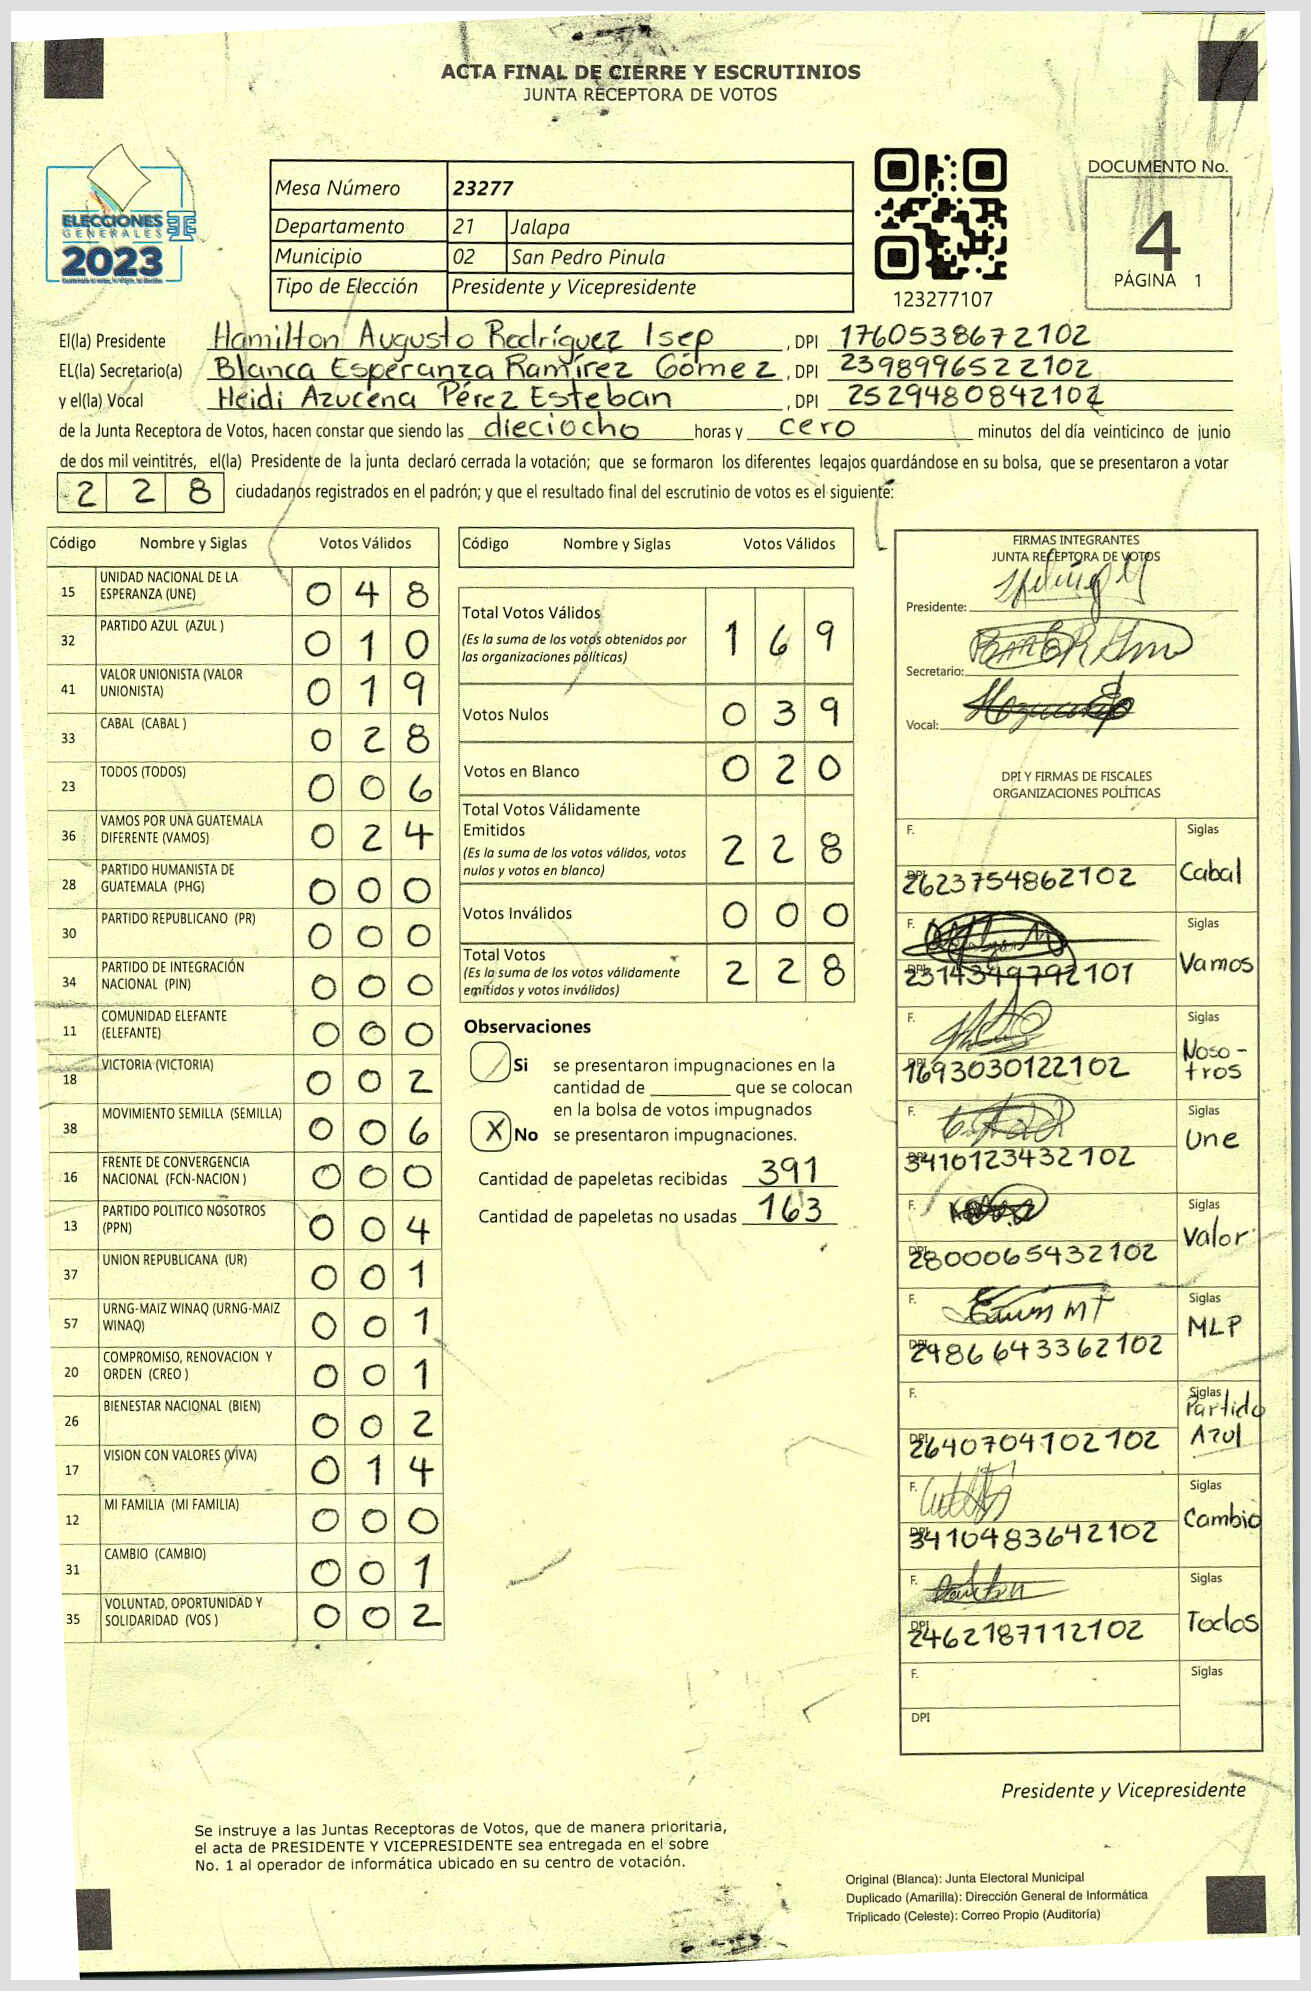 ACTA FINAL DE CIERRE Y ESCRUTINIOS
JUNTA RECEPTORA DE VOTOS
ELECCIONES
GENERALES
2023
Mesa Número 23277
Departamento 21 Jalapa
Municipio 02 San Pedro Pinula
Tipo de Elección Presidente y Vicepresidente
123277107
DOCUMENTO No.
4
PÁGINA 1
El(la) Presidente Hamilton Augusto Rodríguez Isep, DPI 1760538672102
EL(la) Secretario(a) Blanca Esperanza Ramírez Gómez, DPI 2398996522102
y el(la) Vocal Heidi Azucena Pérez Esteban, DPI 2529480842102
de la Junta Receptora de Votos, hacen constar que siendo las dieciocho horas y cero minutos del día veinticinco de junio
de dos mil veintitrés, el(la) Presidente de la junta declaró cerrada la votación; que se formaron los diferentes legajos guardándose en su bolsa, que se presentaron a votar
228 ciudadanos registrados en el padrón; y que el resultado final del escrutinio de votos es el siguiente:
Código Nombre y Siglas Votos Válidos
15 UNIDAD NACIONAL DE LA ESPERANZA (UNE) 048
32 PARTIDO AZUL (AZUL ) 010
41 VALOR UNIONISTA (VALOR UNIONISTA) 019
33 CABAL (CABAL ) 028
23 TODOS (TODOS) 006
36 VAMOS POR UNA GUATEMALA DIFERENTE (VAMOS) 024
28 PARTIDO HUMANISTA DE GUATEMALA (PHG) 000
30 PARTIDO REPUBLICANO (PR) 000
34 PARTIDO DE INTEGRACIÓN NACIONAL (PIN) 000
11 COMUNIDAD ELEFANTE (ELEFANTE) 000
18 VICTORIA (VICTORIA) 002
38 MOVIMIENTO SEMILLA (SEMILLA) 006
16 FRENTE DE CONVERGENCIA NACIONAL (FCN-NACION ) 000
13 PARTIDO POLITICO NOSOTROS (PPN) 004
37 UNION REPUBLICANA (UR) 001
57 URNG-MAIZ WINAQ (URNG-MAIZ WINAQ) 001
20 COMPROMISO, RENOVACION Y ORDEN (CREO ) 001
26 BIENESTAR NACIONAL (BIEN) 002
17 VISION CON VALORES (VIVA) 014
12 MI FAMILIA (MI FAMILIA) 000
31 CAMBIO (CAMBIO) 001
35 VOLUNTAD, OPORTUNIDAD Y SOLIDARIDAD (VOS ) 002
Código Nombre y Siglas Votos Válidos
Total Votos Válidos 169
(Es la suma de los votos obtenidos por
las organizaciones políticas)
Votos Nulos 039
Votos en Blanco 020
Total Votos Válidamente
Emitidos 228
(Es la suma de los votos válidos, votos
nulos y votos en blanco)
Votos Inválidos 000
Total Votos 228
(Es la suma de los votos válidamente
emitidos y votos inválidos)
Observaciones
Si se presentaron impugnaciones en la
cantidad de ________ que se colocan
en la bolsa de votos impugnados
X No se presentaron impugnaciones.
Cantidad de papeletas recibidas 391
Cantidad de papeletas no usadas 163
FIRMAS INTEGRANTES
JUNTA RECEPTORA DE VOTOS
Presidente:
Secretario:
Vocal:
DPI Y FIRMAS DE FISCALES
ORGANIZACIONES POLÍTICAS
F. Siglas
DPI 2623754862102 Cabal
F. Siglas
DPI 2314349792101 Vamos
F. Siglas
DPI 1693030122102 Noso-tros
F. Siglas
DPI 3410123432102 Une
F. Siglas
DPI 2800065432102 Valor
F. Siglas
DPI 2486643362102 MLP
F. Siglas
DPI 2640704102102 Partido Azul
F. Siglas
DPI 3410483642102 Cambio
F. Siglas
DPI 2462187112102 Todos
F. Siglas
DPI
Presidente y Vicepresidente
Se instruye a las Juntas Receptoras de Votos, que de manera prioritaria,
el acta de PRESIDENTE Y VICEPRESIDENTE sea entregada en el sobre
No. 1 al operador de informática ubicado en su centro de votación.
Original (Blanca): Junta Electoral Municipal
Duplicado (Amarilla): Dirección General de Informática
Triplicado (Celeste): Correo Propio (Auditoría)